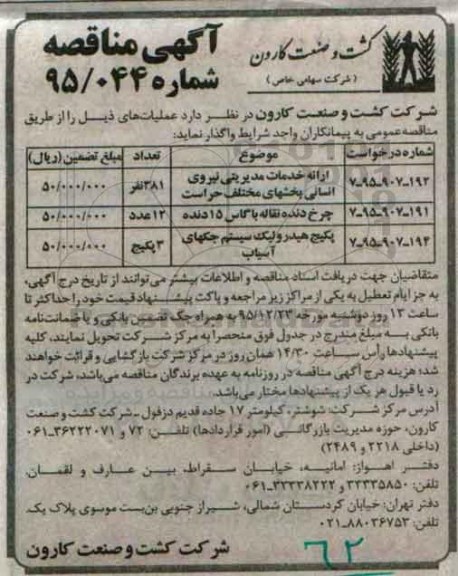 کشت و صنعت کارون
(شرکت سهامی خاص)
آگهی مناقصه
شماره ۹۵/۰۴۴
شرکت کشت و صنعت کارون در نظر دارد عملیات‌های ذیل را از طریق
مناقصه عمومی به پیمانکاران واجد شرایط واگذار نماید:
شماره درخواست موضوع تعداد مبلغ تضمین (ریال)
۷-۹۵-۹۰۷-۱۹۲ ارائه خدمات مدیریتی نیروی انسانی بخشهای مختلف حراست ۳۸۱نفر ۵۰/۰۰۰/۰۰۰
۷-۹۵-۹۰۷-۱۹۱ چرخ دنده نقاله باگاس ۱۵ دنده ۱۲عدد ۵۰/۰۰۰/۰۰۰
۷-۹۵-۹۰۷-۱۹۴ پکیج هیدرولیک سیستم جکهای آسیاب ۳پکیج ۵۰/۰۰۰/۰۰۰
متقاضیان جهت دریافت اسناد مناقصه و اطلاعات بیشتر می‌توانند از تاریخ درج آگهی،
به جز ایام تعطیل به یکی از مراکز زیر مراجعه و پاکت پیشنهاد قیمت خود را حداکثر تا
ساعت ۱۳ روز دوشنبه مورخه ۹۵/۱۲/۲۳ به همراه چک تضمین بانکی و یا ضمانت‌نامه
بانکی به مبلغ مندرج در جدول فوق منحصراً به مرکز شرکت تحویل نمایند، کلیه
پیشنهادها رأس ساعت ۱۴/۳۰ همان روز در مرکز شرکت بازگشایی و قرائت خواهند
شد؛ هزینه درج آگهی مناقصه در روزنامه به عهده برندگان مناقصه می‌باشد، شرکت در
رد یا قبول هر یک از پیشنهادها مختار می‌باشد.
آدرس مرکز شرکت: شوشتر، کیلومتر ۱۷ جاده قدیم دزفول ـ شرکت کشت و صنعت
کارون، حوزه مدیریت بازرگانی (امور قراردادها) تلفن: ۷۲ و ۳۶۲۲۲۰۷۱-۰۶۱
(داخلی ۲۲۱۸ و ۲۴۸۹)
دفتر اهواز: امانیه، خیابان سقراط، بین عارف و لقمان.
تلفن: ۳۳۳۳۵۸۵۰ و ۳۳۳۳۸۲۲۲-۰۶۱
دفتر تهران: خیابان کردستان شمالی، شیراز جنوبی بن‌بست موسوی پلاک یک.
تلفن: ۸۸۰۳۶۷۵۳-۰۲۱
شرکت کشت و صنعت کارون
۶۲